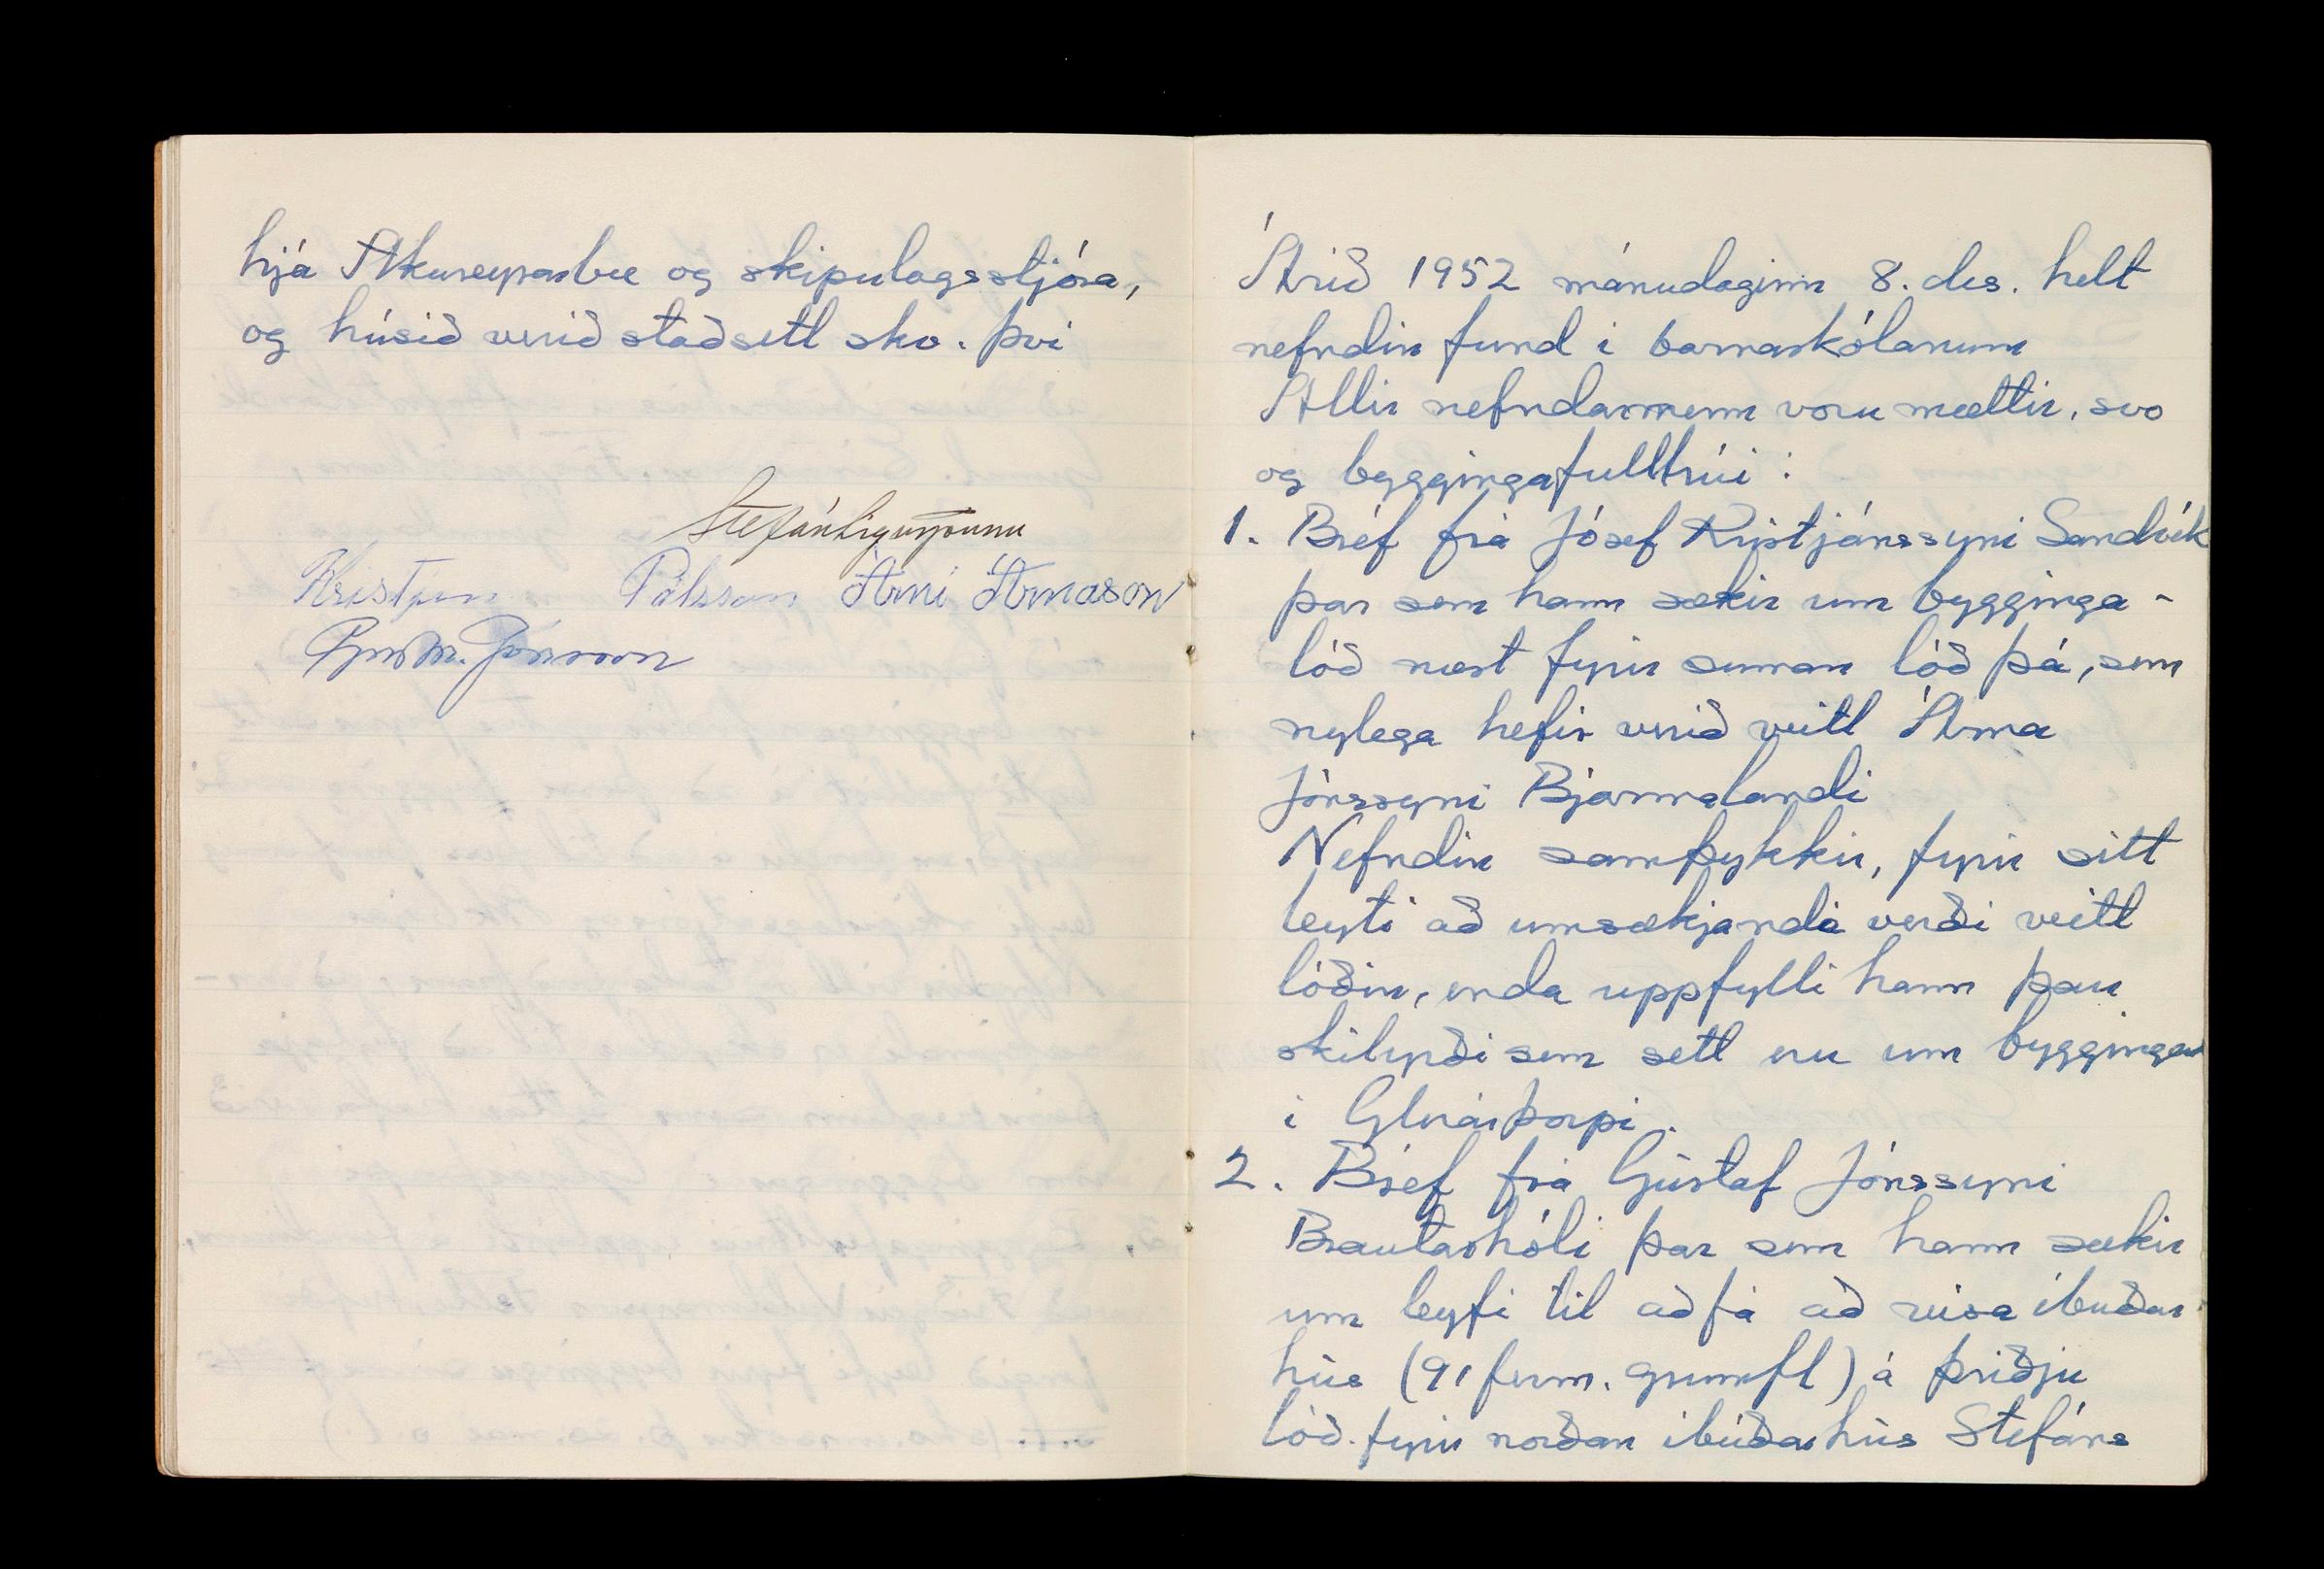 hjá Akureyrarbæ og skipulagsstjóra,
og húsið verið staðsett skv. því
Stefán Sigurjónsson
Kristján Pálsson Árni Árnason
Guðm. Jónsson
Árið 1952 mánudaginn 8. des. helt
nefndin fund í barnaskólanum
Allir nefndarmenn voru mættir, svo
og byggingafulltrúi:
1. Bréf frá Jósef Kristjánssyni Sandvík
þar sem hann sækir um bygginga-
lóð næst fyrir sunnan lóð þá, sem
nýlega hefir verið veitt Árna
Jónssyni Bjarmalandi
Nefndin samþykkir, fyrir sitt
leyti að umsækjanda verði veitt
lóðin, enda uppfylli hann þau
skilyrði sem sett eru um byggingar
í Glerárþorpi.
2. Bréf frá Gústaf Jónssyni
Brautarhóli þar sem hann sækir
um leyfi til að fá að reisa íbúðar
hús (91 ferm. grunnfl) á þriðju
lóð fyrir norðan íbúðarhús Stefáns